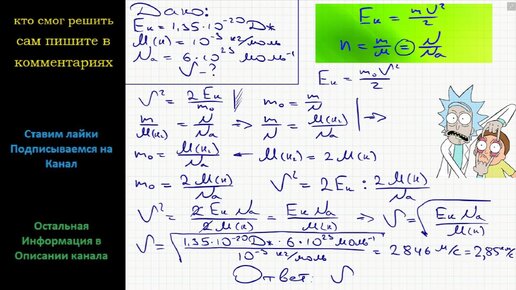 кто смог решить
сам пишите в
комментариях
Ставим лайки
Подписываемся на
Канал
Остальная
Информация в
Описании канала
Дано:
Eк = 1,35·10⁻²⁰ Дж
M(н) = 10⁻³ кг/моль
Nа = 6·10²³ моль⁻¹
V - ?
Eк = mV²/2
n = m/M = N/Nа
Eк = m₀V²/2
V² = 2Eк/m₀
m₀ = m/N
m/M(н₂) = N/Nа → m/N = M(н₂)/Nа →
m₀ = M(н₂)/Nа ← M(н₂) = 2M(н)
m₀ = 2M(н)/Nа V² = 2Eк : 2M(н)/Nа
V² = 2EкNа/2M(н) = EкNа/M(н) → V = √(EкNа/M(н))
V = √(1,35·10⁻²⁰Дж·6·10²³моль⁻¹/10⁻³ кг/моль) = 2846 м/с = 2,85 км/с
Ответ: V